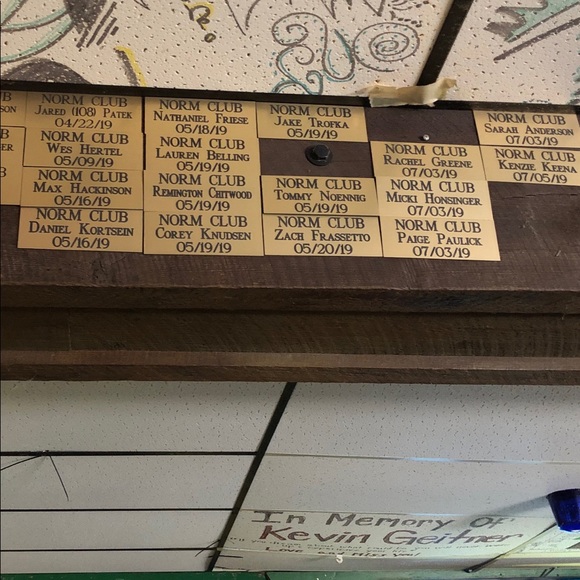 NORM CLUB
JARED (108) PATEK
04/22/19
NORM CLUB
WES HERTEL
05/09/19
NORM CLUB
MAX HACKINSON
05/16/19
NORM CLUB
DANIEL KORTSEIN
05/16/19
NORM CLUB
NATHANIEL FRIESE
05/18/19
NORM CLUB
LAUREN BELLING
05/19/19
NORM CLUB
REMINGTON CHITWOOD
05/19/19
NORM CLUB
COREY KNUDSEN
05/19/19
NORM CLUB
JAKE TROFKA
05/19/19
NORM CLUB
TOMMY NOENNIG
05/19/19
NORM CLUB
ZACH FRASSETTO
05/20/19
NORM CLUB
RACHEL GREENE
07/03/19
NORM CLUB
MICKI HONSINGER
07/03/19
NORM CLUB
PAIGE PAULICK
07/03/19
NORM CLUB
SARAH ANDERSON
07/03/19
NORM CLUB
KENZIE KEENA
07/05/19
In Memory Of
Kevin Geitner
LOVE AND MISS YOU!